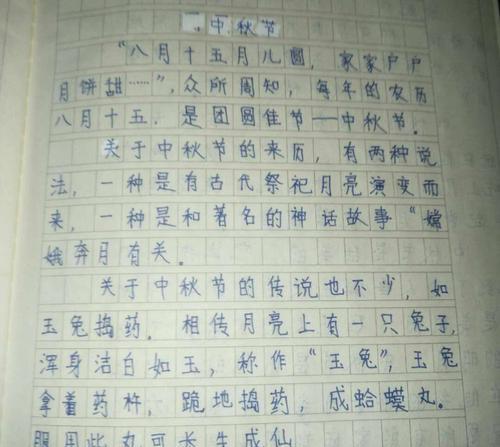 中秋节
“八月十五月儿圆,家家户户
月饼甜……”,众所周知,每年的农历
八月十五,是团圆佳节——中秋节。
关于中秋节的来历,有两种说
法,一种是有古代祭祀月亮演变而
来,一种是和著名的神话故事“嫦
娥奔月有关。
关于中秋节的传说也不少,如
玉兔捣药。相传月亮上有一只兔子,
浑身洁白如玉,称作“玉兔”,玉兔
拿着药杵,跪地捣药,成蛤蟆丸。
服用此丸可长生成仙